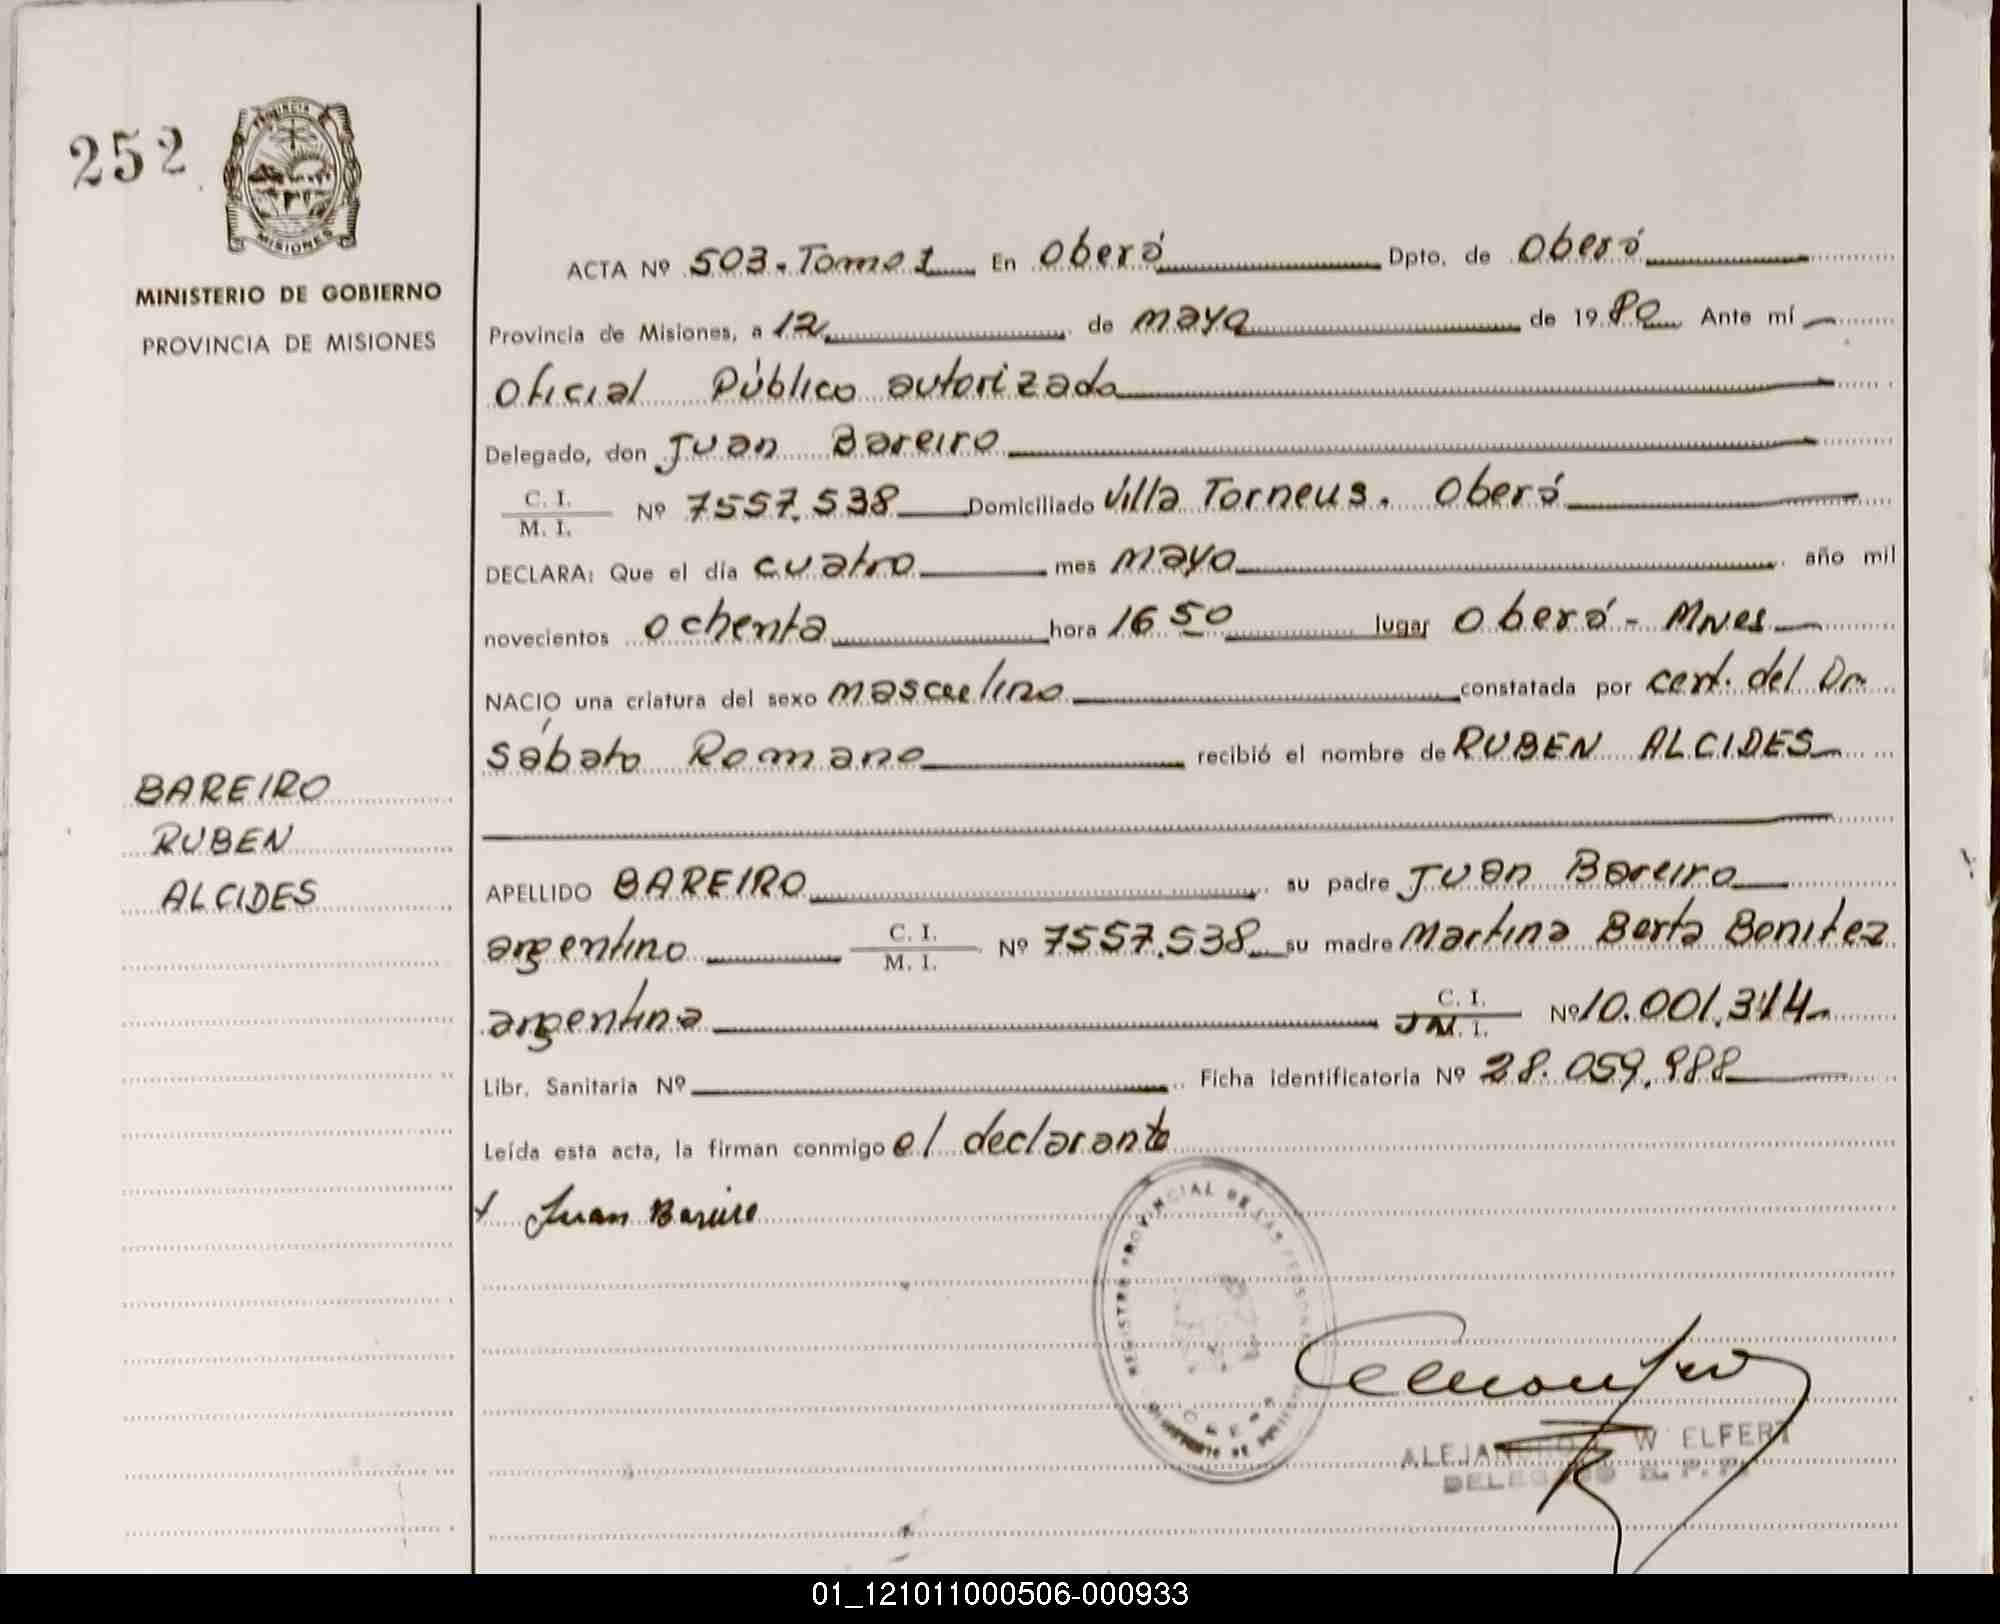 252
PROVINCIA
MISIONES
MINISTERIO DE GOBIERNO
PROVINCIA DE MISIONES
BAREIRO
RUBEN
ALCIDES
ACTA Nº 503. Tomo 1 En Oberá Dpto. de Oberá
Provincia de Misiones, a 12 de mayo de 1980 Ante mí
Oficial Público autorizado
Delegado, don Juan Bareiro
C. I.
M. I. Nº 7557.538 Domiciliado Villa Torneus. Oberá
DECLARA: Que el día cuatro mes mayo año mil
novecientos ochenta hora 16 50 lugar Oberá - Mnes
NACIO una criatura del sexo masculino constatada por cert. del Dr
Sábato Romano recibió el nombre de RUBEN ALCIDES
APELLIDO BAREIRO su padre Juan Bareiro
argentino C. I. M. I. Nº 7557.538 su madre Martina Berta Benitez
argentina C. I. M. I. Nº 10.001.314
Libr. Sanitaria Nº Ficha identificatoria Nº 28.059.988
Leída esta acta, la firman conmigo el declarante
Juan Bareiro
REGISTRO PROVINCIAL DE LAS PERSONAS
OBERA
ALEJANDRO W ELFERT
DELEGADO R. P. P.
01_121011000506-000933